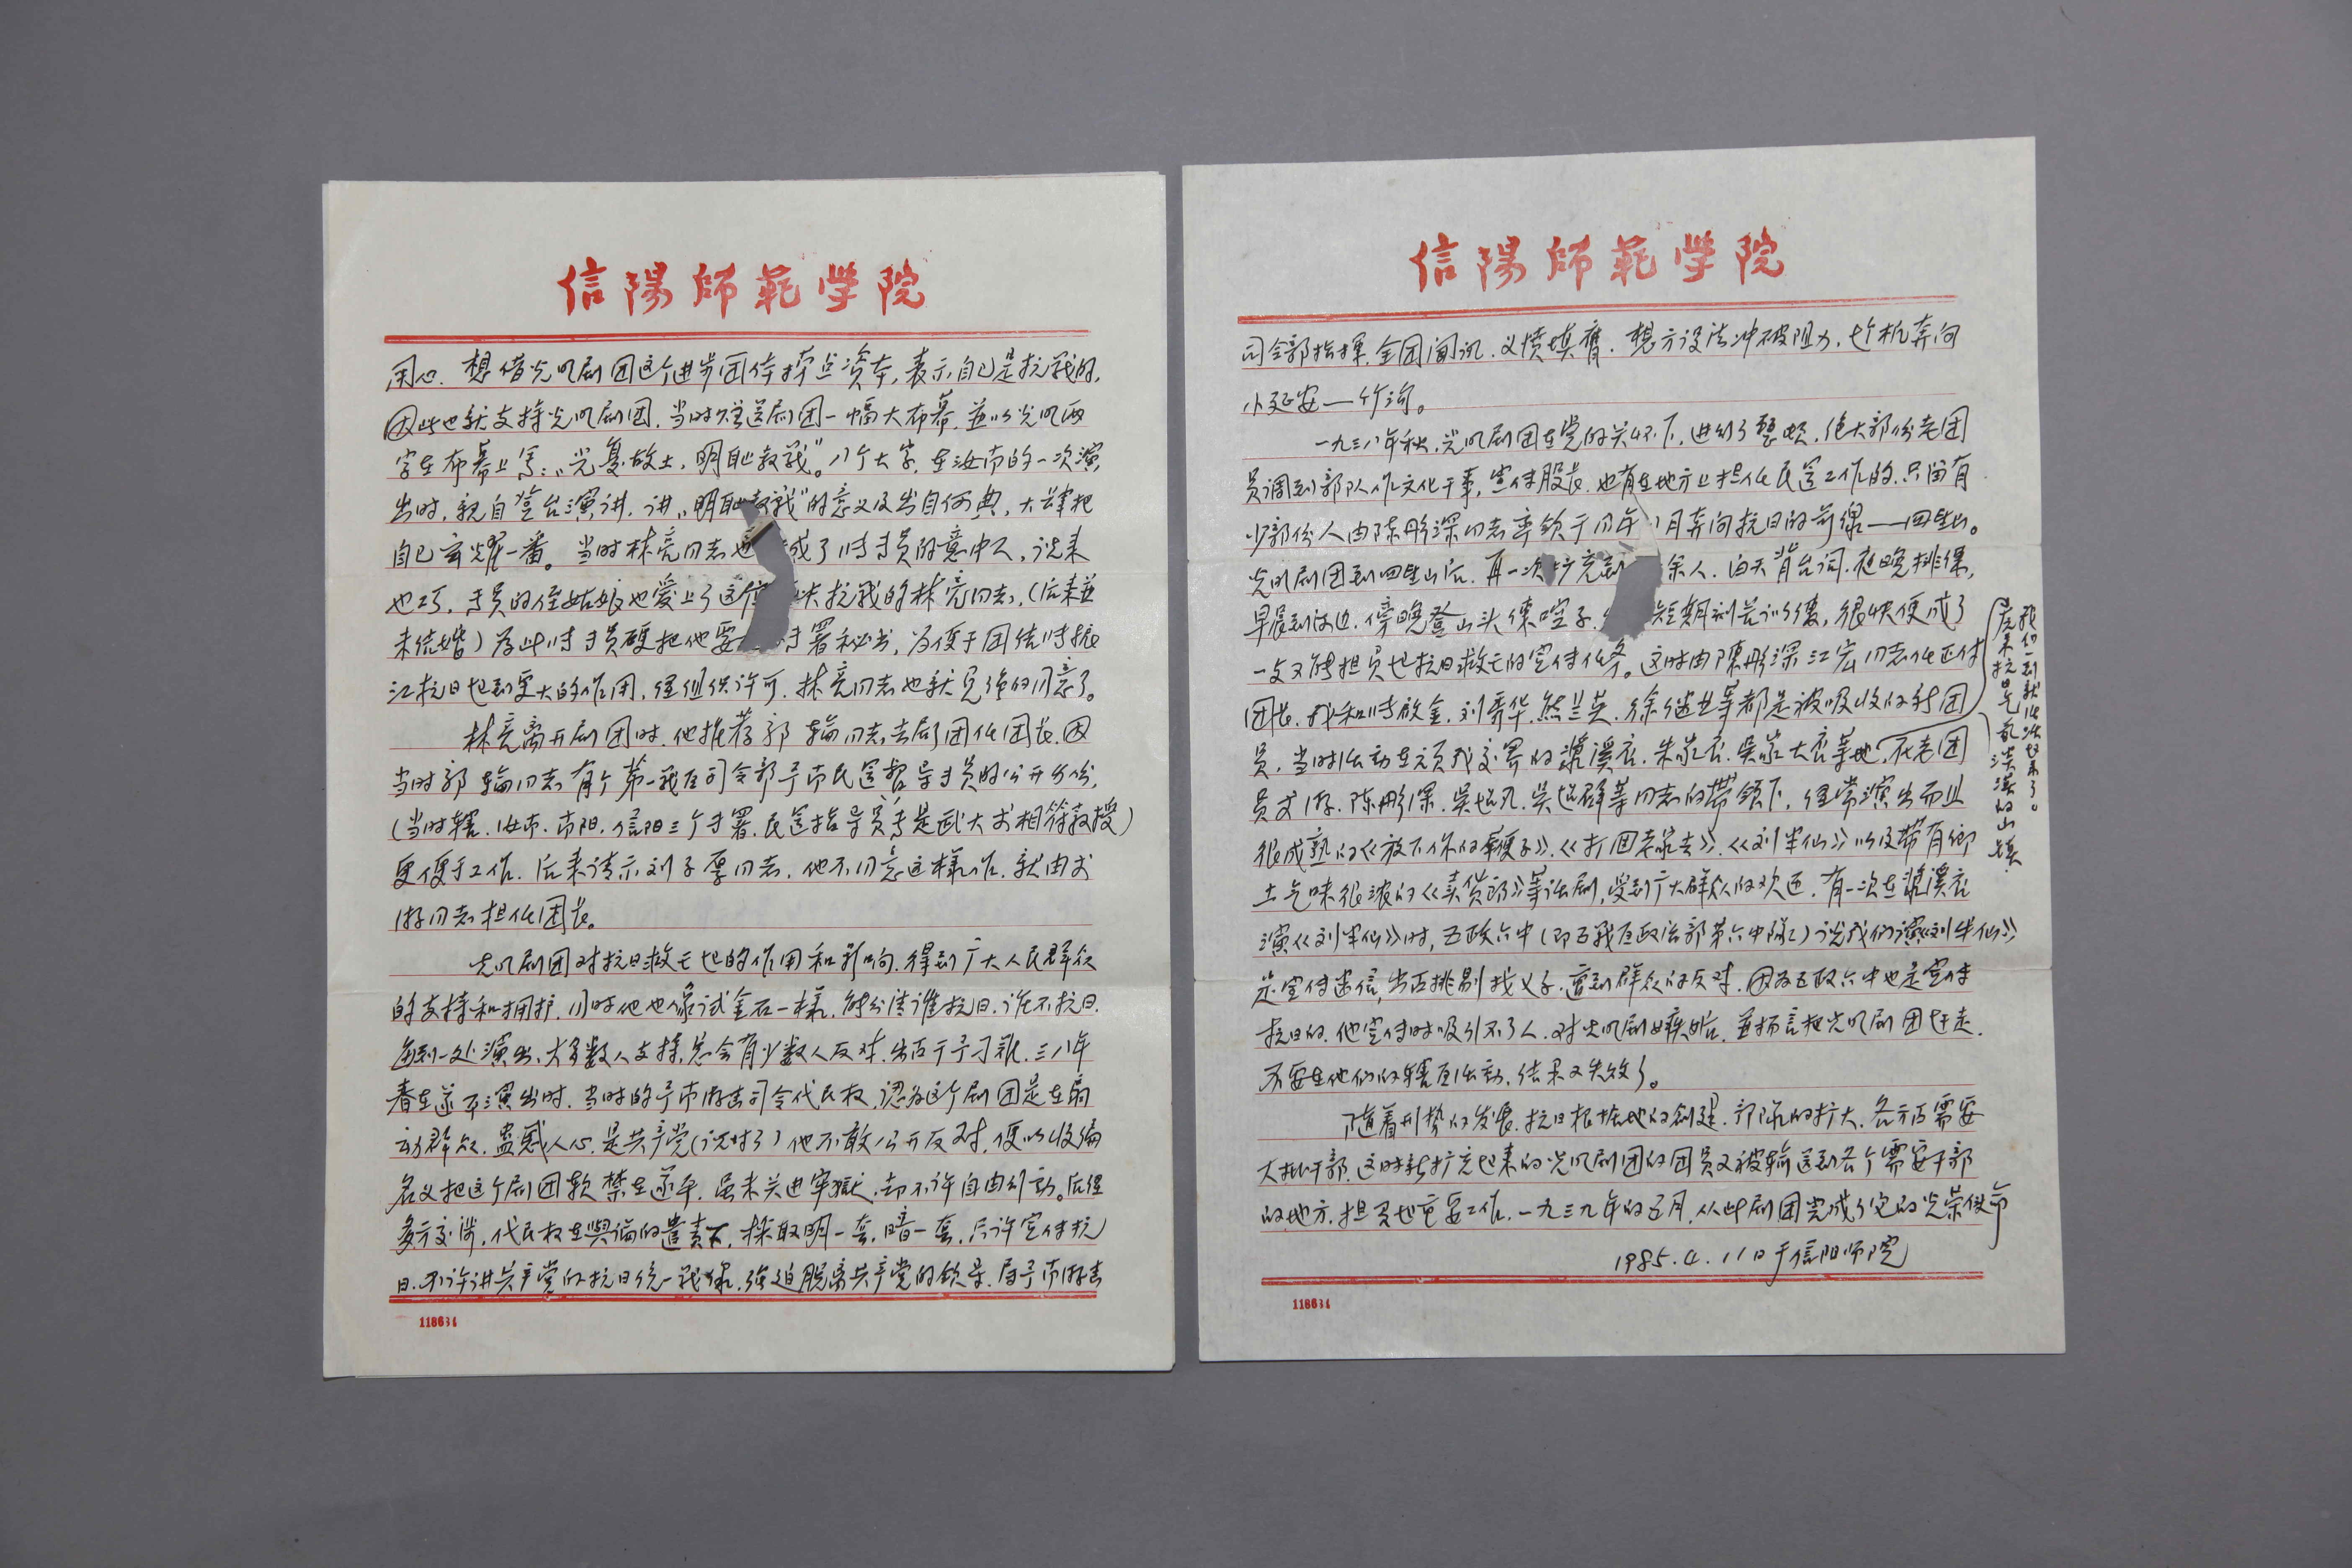 信陽师范学院
用心。想借光明剧团这个进步团体捞点资本,表示自己是抗战的,
因此也就支持光明剧团,当时赠送剧团一幅大布幕,並以光明两
字在布幕上写:“光复故土,明耻教战”。八个大字,在汝南的一次演
出时,亲自登台演讲,讲“明耻教战”的意义及出自何典,大肆把
自己玄耀一番。当时林亮同志也 成了 专员的意中人,说来
也巧,专员的侄姑娘也爱上了这个 抗战的林亮同志,(后来並
未结婚)为此 专员硬把他要 专署秘书,为便于团结 振
江抗日起到更大的作用,经组织许可,林亮同志也就 同意了。
林亮离开剧团时,他推荐郭 同志去剧团任团长,因
当时郭 同志有个第一战区司令部 民运指导专员的公开身份,
(当时辖 三个专署,民运指导员是武大 教授)
更便于工作,后来请示刘子厚同志,他不同意这样作,就由
游同志担任团长。
光明剧团对抗日救亡起的作用和影响,得到广大人民群众
的支持和拥护,同时他也象试金石一样,能分清谁抗日,谁不抗日,
每到一处演出,大多数人支持,总会有少数人反对,出面干予刁难,三八年
春在遂平演出时,当时的予南游击司令代民权,認为这个剧团是在扇
动群众,蛊惑人心,是共产党(说对了)他不敢公开反对,便以收编
名义把这个剧团软禁在遂平,虽未关进牢獄,却不许自由行动。后经
多方交涉,代民权在舆论的谴责下,採取明一套,暗一套,只许宣传抗
日,不许讲共产党的抗日统一战線,强迫脱离共产党的领导,属予南游击
118634
信陽师范学院
司令部指揮,全团闻讯,义愤填膺,想方设法冲破阻力,乜机奔向
小延安——竹沟。
一九三八年秋,光明剧团在党的关怀下,进行了整顿,绝大部份老团
员调到部队作文化干事,宣传股长,也有在地方上担任民运工作的,只留有
少部份人由陈彤深同志率领于同年 月奔向抗日的前缐——四望山。
光明剧团到四望山后,再一次扩充到 余人,白天背台词,夜晚排练,
早晨到河边,傍晚登山头练嗓子, 短期刻苦训练,很快便成了
一支又能担负起抗日救亡的宣传任务。这时由陳彤深 江宏同志任正付
团长,我和 放金,刘秀华,熊兰英,徐继 等都是被吸收的新团
员,当时活动在 交界的漿溪店,朱家店,吴家大店等地,在老团
员 游,陈彤深,吴 凡,吴 群等同志的带领下,经常演出而且
很成熟的《放下你的鞭子》,《打回老家去》,《刘半仙》以及带有鄉
土气味很浓的《卖货郎》等话剧,受到广大群众的欢迎,有一次在漿溪店
演《刘半仙》时,五政六中(即五战区政治部第六中隊)说我们演《刘半仙》
是宣传迷信,出面挑剔找义子,遭到群众的反对,因为五政六中也是宣传
抗日的,他宣传时吸引不了人,对光明剧 嫉妒,並扬言把光明剧团赶走,
不要在他们的辖区活动,结果又失效了。
随着形势的发展,抗日根据地的創建,部隊的扩大,各方面需要
大批干部,这时新扩充起来的光明剧团的团员又被输送到各个需要干部
的地方,担负起重要工作,一九三九年的五月,从此剧团完成了它的光荣使命
1985.4.11日于信阳师院
118634
我们一到就活跃起来了。
原来抗日是 的山镇